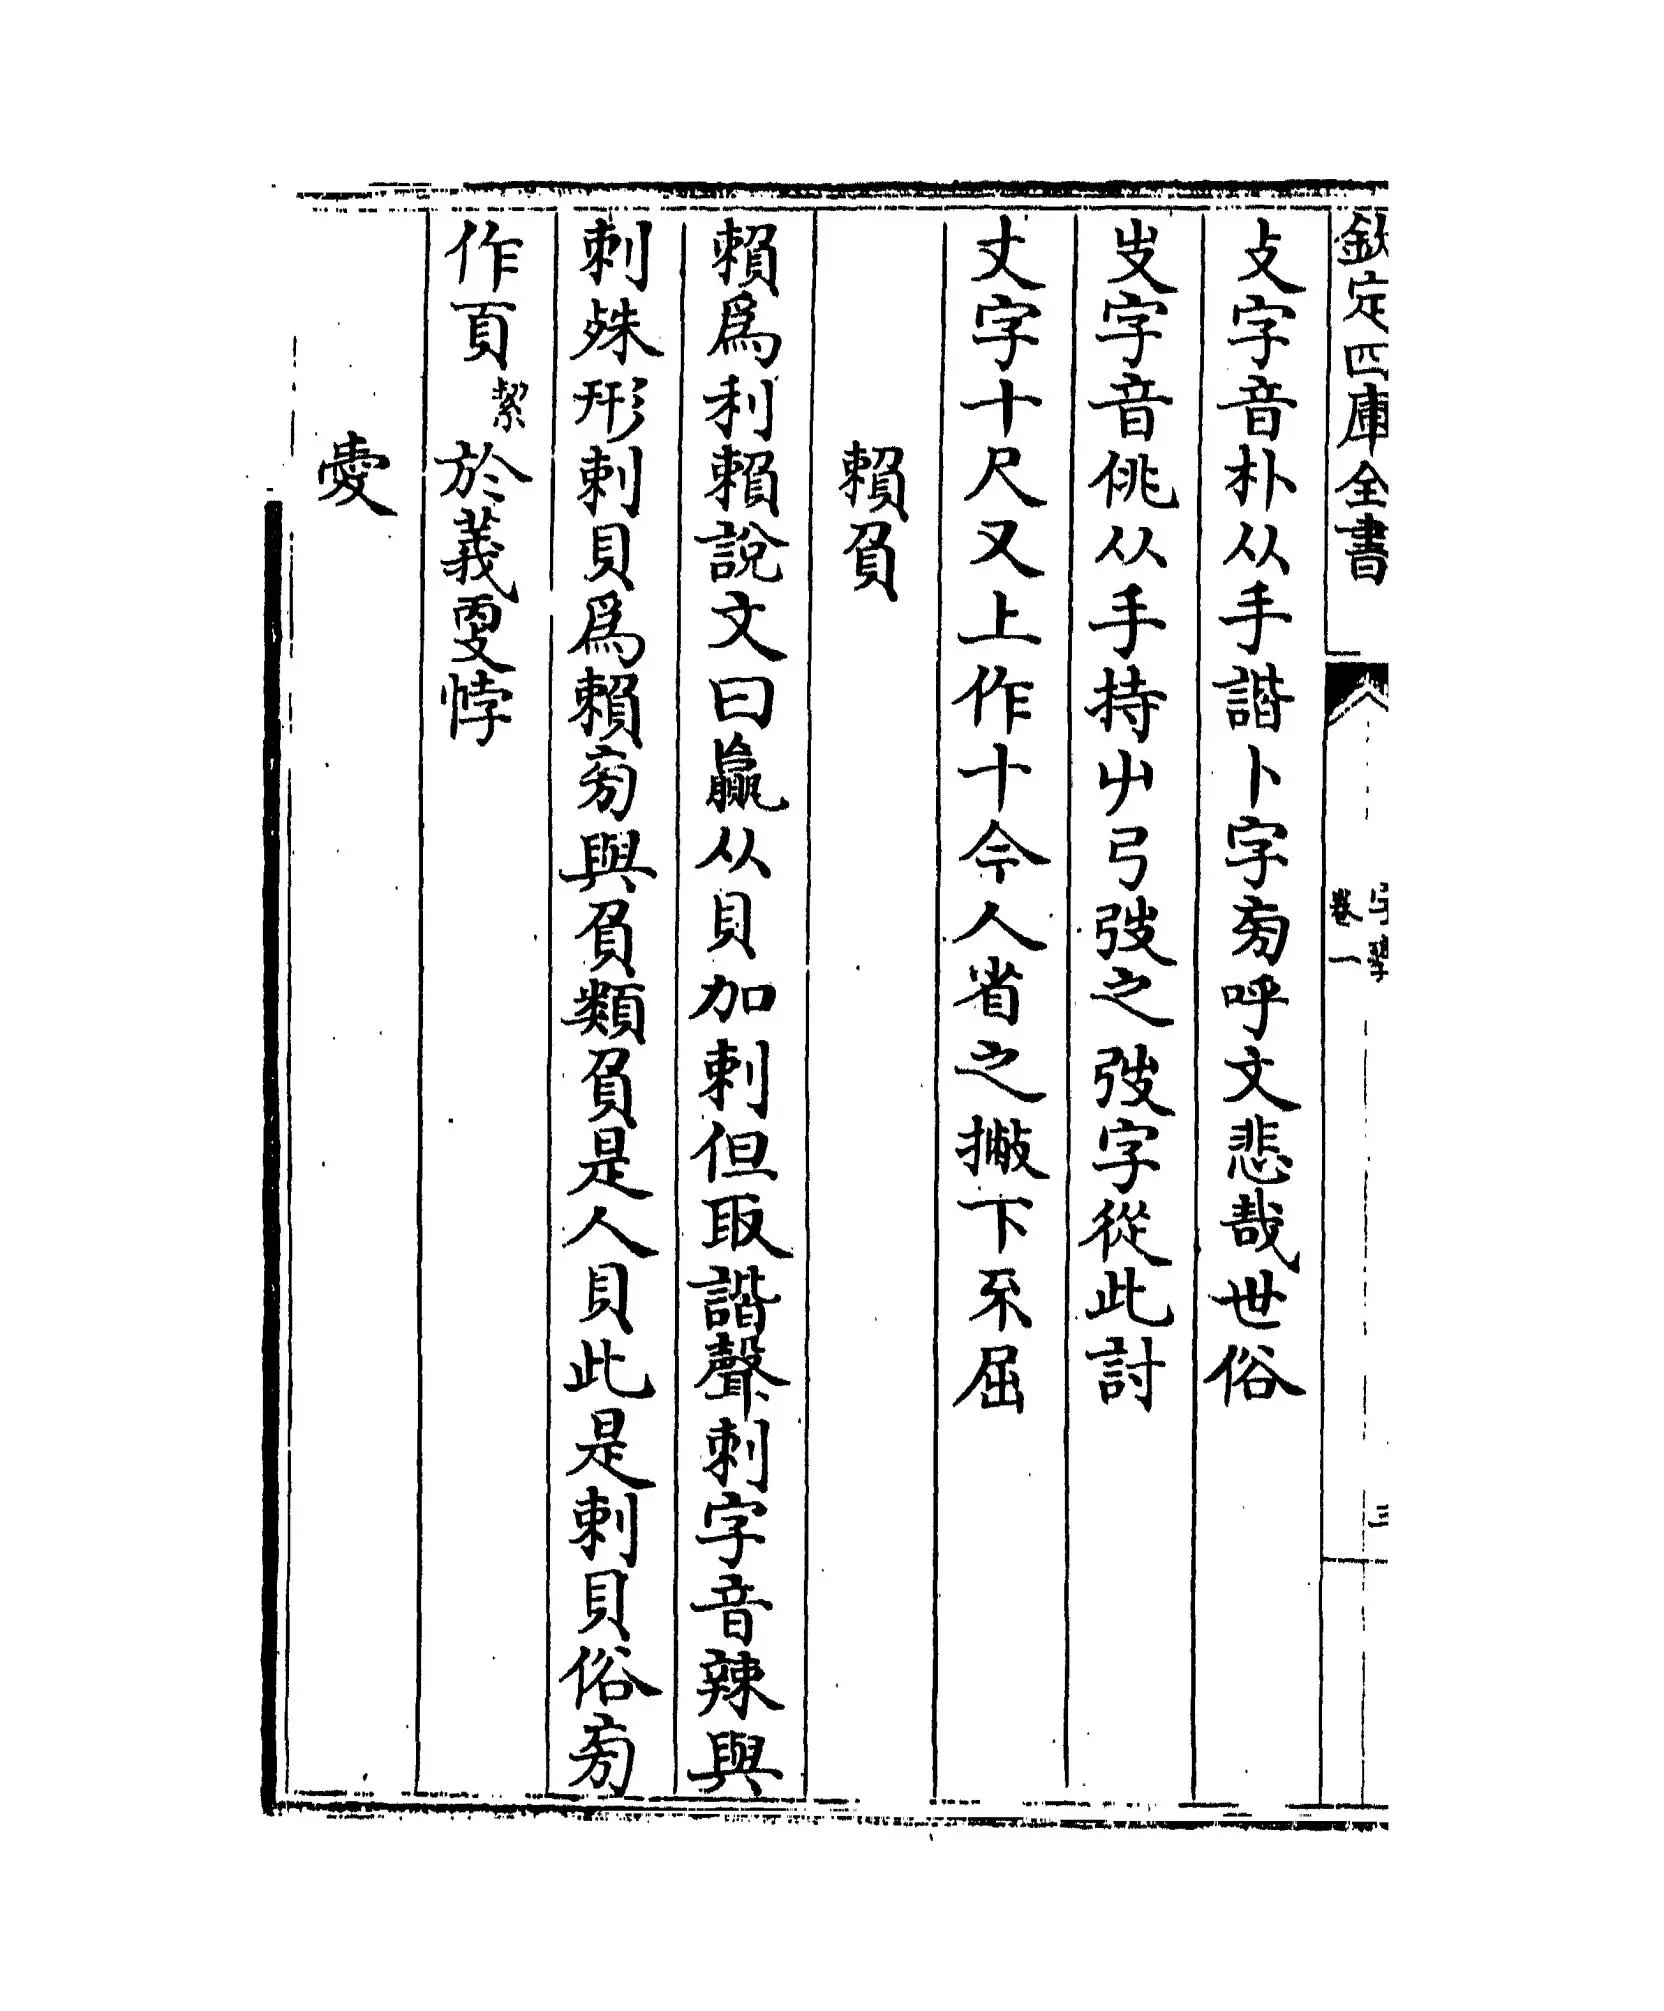 欽定四庫全書
字孿
卷一
三
攴字音朴从手諧卜字旁呼文悲哉世俗
𠬢字音佻从手持屮弓弢之弢字從此討
丈字十尺又上作十今人省之撇下不屈
賴負
賴爲利賴說文曰贏从貝加剌但取諧聲剌字音辣與
刺殊形剌貝爲賴旁與負類負是人貝此是剌貝俗旁
作頁絜於義更悖
憂